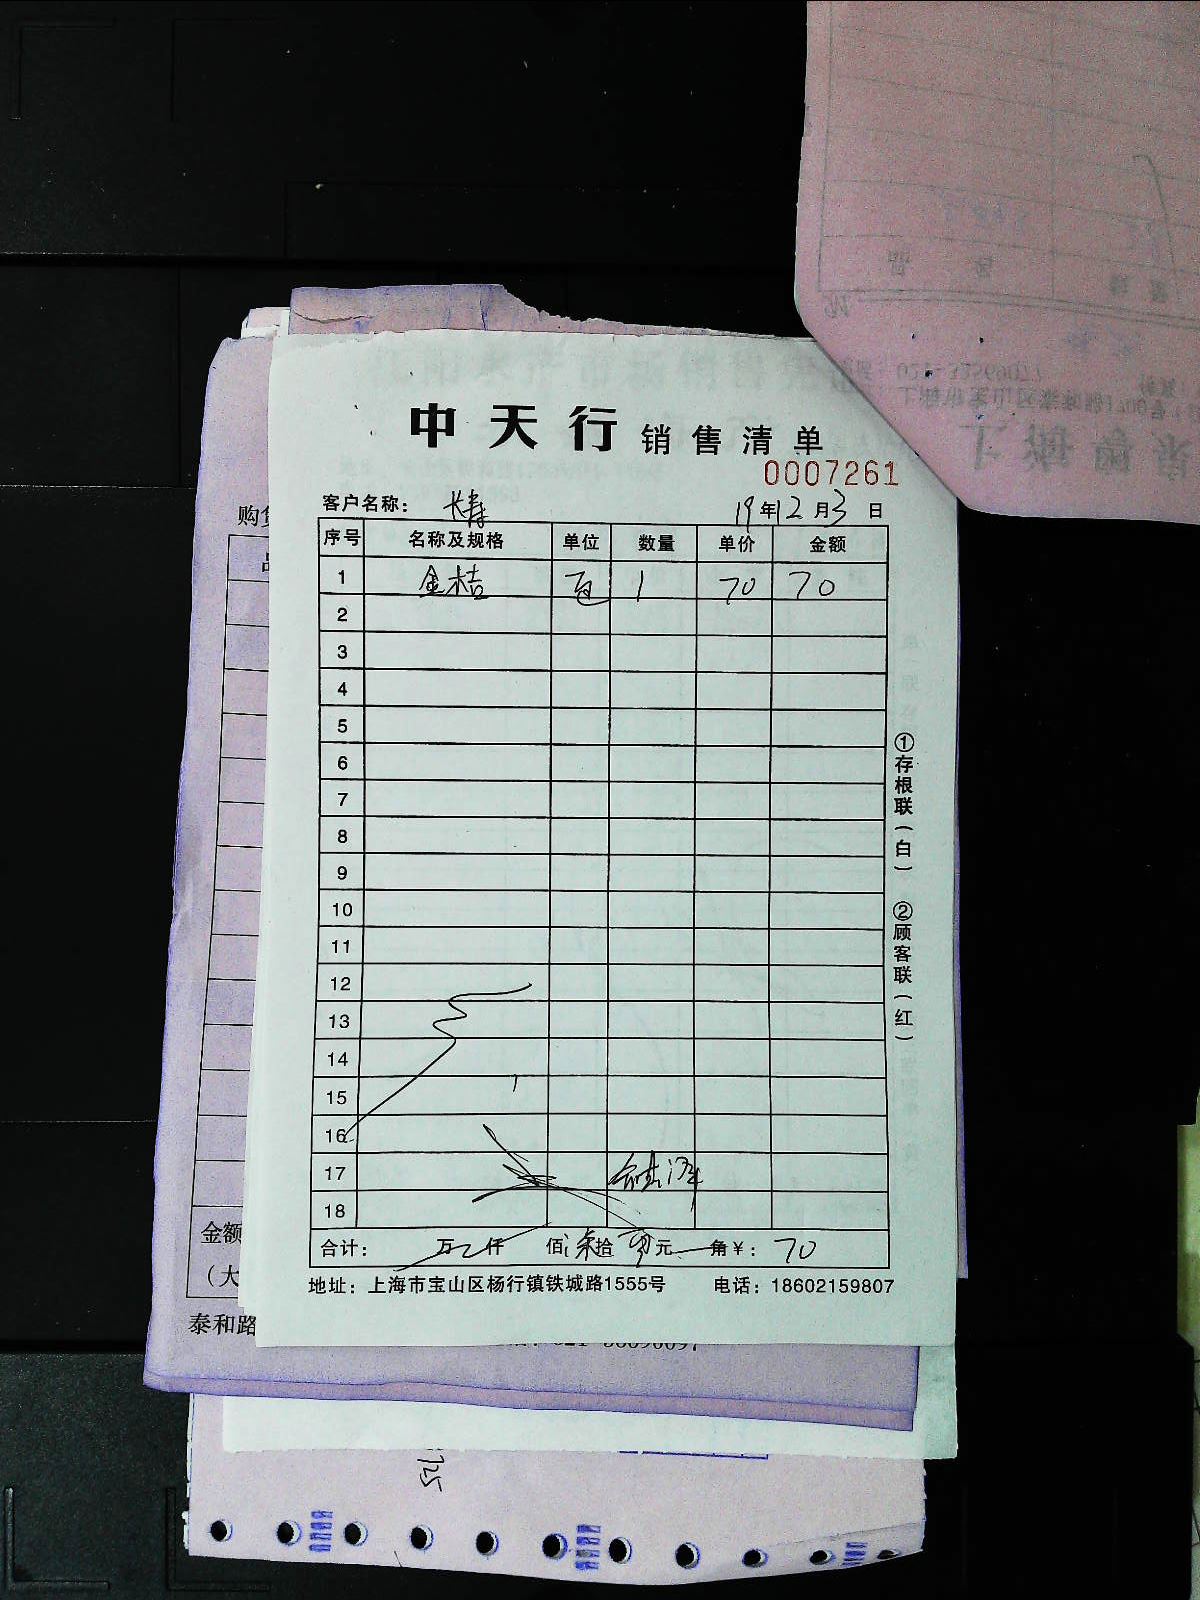 中天行 销售清单
0007261
客户名称： 长寿 19年12月3日
序号 名称及规格 单位 数量 单价 金额
1 金桔 包 1 70 70
2
3
4
5
6
7
8
9
10
11
12
13
14
15
16
17
18
合计： 万 仟 佰 柒拾 零元 角￥： 70
地址：上海市宝山区杨行镇铁城路1555号 电话：18602159807
①存根联（白） ②顾客联（红）
购货
金额
（大
泰和路